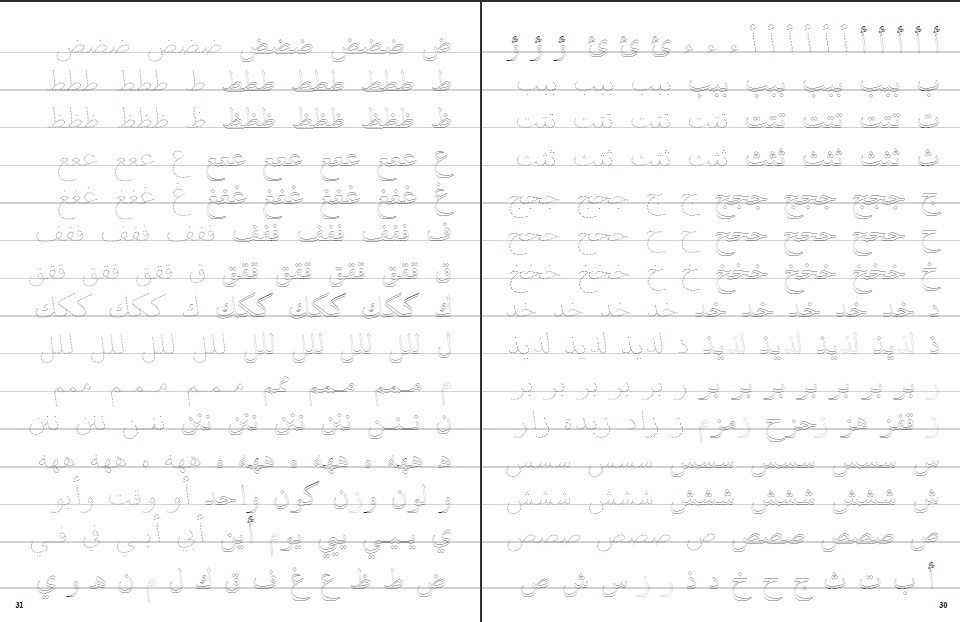 أ أ أ أ أ أ أ أ أ أ أ ء ء ء ئ ئ ئ ؤ ؤ ؤ
ب ببب ببب ببب ببب ببب ببب ببب
ت تتت تتت تتت تتت تتت تتت تتت
ث ثثث ثثث ثثث ثثث ثثث ثثث ثثث
ج ججج ججج ججج ج ج ججج ججج
ح ححح ححح ححح ح ح ححح ححح
خ خخخ خخخ خخخ خ خ خخخ خخخ
د خد خد خد خد خد خد خد خد خد
ذ لذيذ لذيذ لذيذ لذيذ ذ لذيذ لذيذ لذيذ
ر بر بر بر بر بر ر بر بر بر بر
ز قفز هز زحزح زمزم ز زاد زبدة زار
س سسس سسس سسس سسس سسس
ش ششش ششش ششش ششش ششش
ص صصص صصص ص صصص صصص
أ ب ت ث ج ح خ د ذ ر ز س ش ص
30
ض ضضض ضضض ضضض ضضض
ط ططط ططط ططط ط ططط ططط
ظ ظظظ ظظظ ظظظ ظ ظظظ ظظظ
ع ععع ععع ععع ععع ع ععع ععع
غ غغغ غغغ غغغ غغغ غ غغغ غغغ
ف ففف ففف ففف ففف ففف ففف
ق ققق ققق ققق ققق ق ققق ققق ققق
ك ككك ككك ككك ك ككك ككك
ل للل للل للل للل للل للل للل للل
م ممم ممم ممم ممم ممم
ن ننن ننن ننن ننن ننن ننن ننن ننن
ه ههه ه ههه ه ههه ه ههه ه ههه ههه
و لون وزن كون واحد أو وقت وأبو
ي ييي يوم أين أبي أبي في في
ض ط ظ ع غ ف ق ك ل م ن ه و ي
31